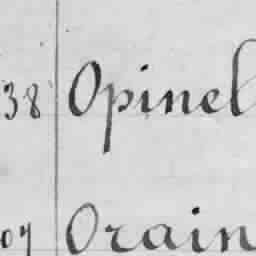 38 Opinel
07 Orain